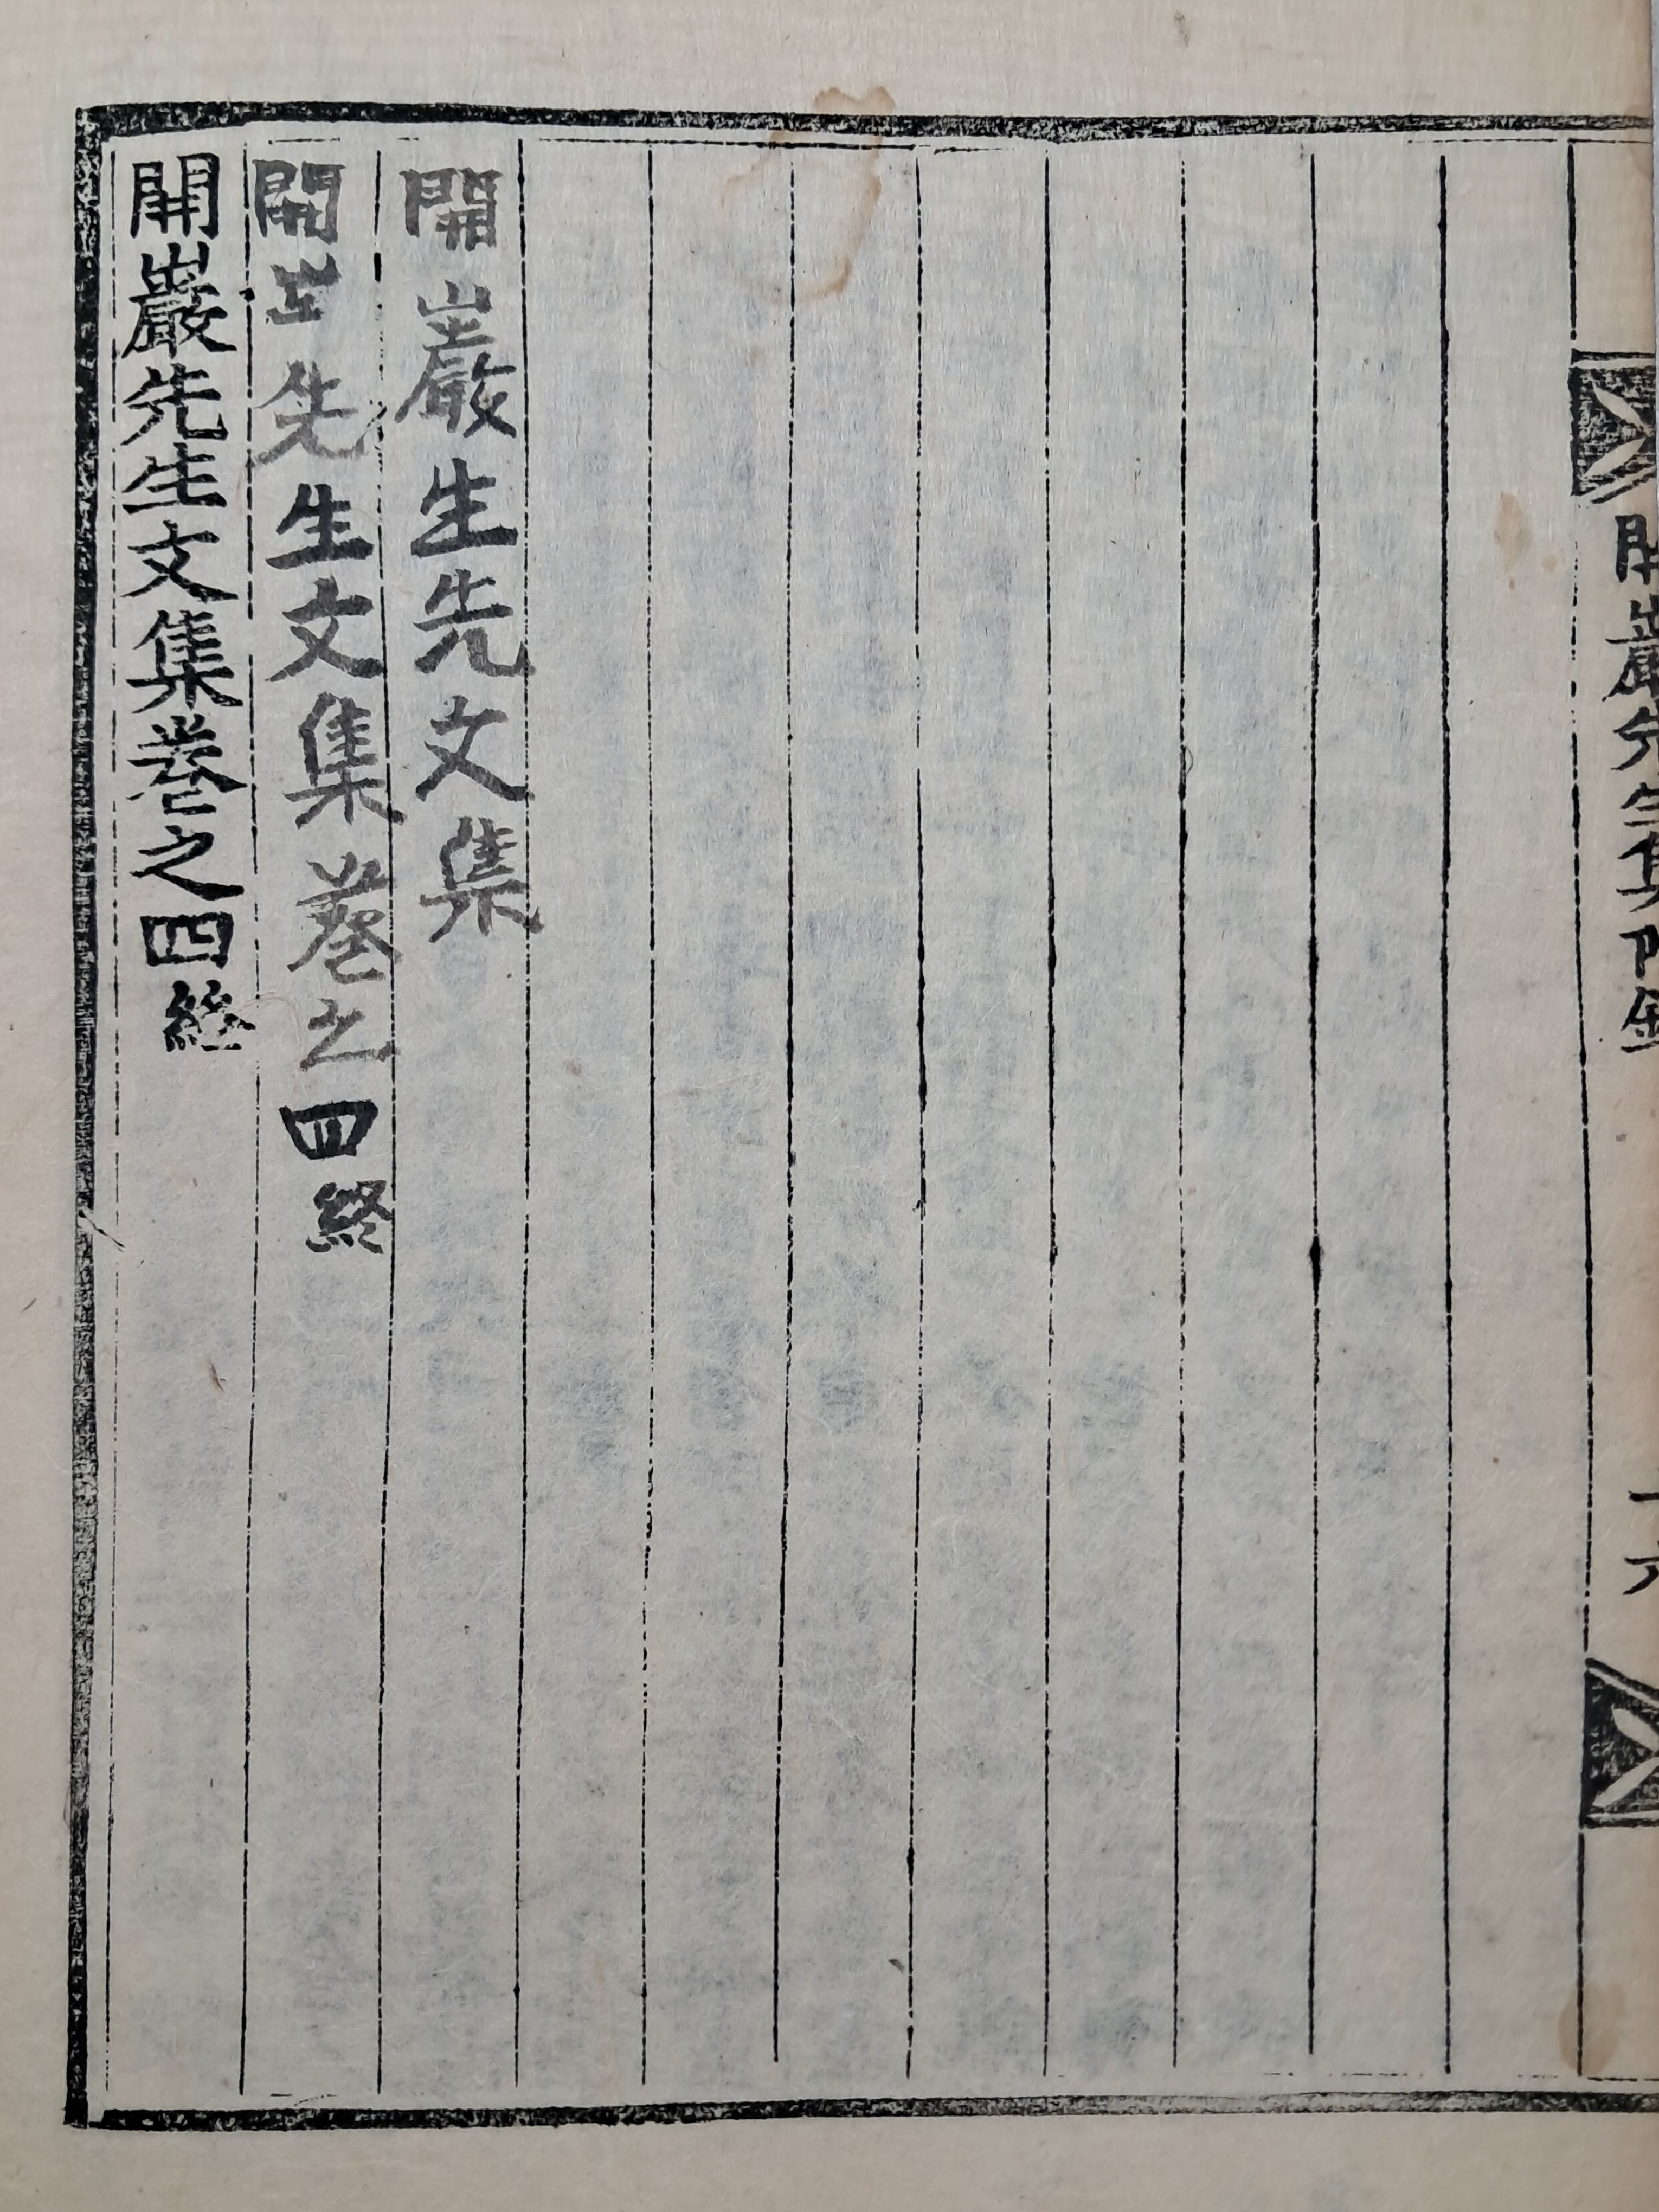 開巖先生集附錄
開巖生先文集
開先生文集卷之四終
開巖先生文集卷之四終